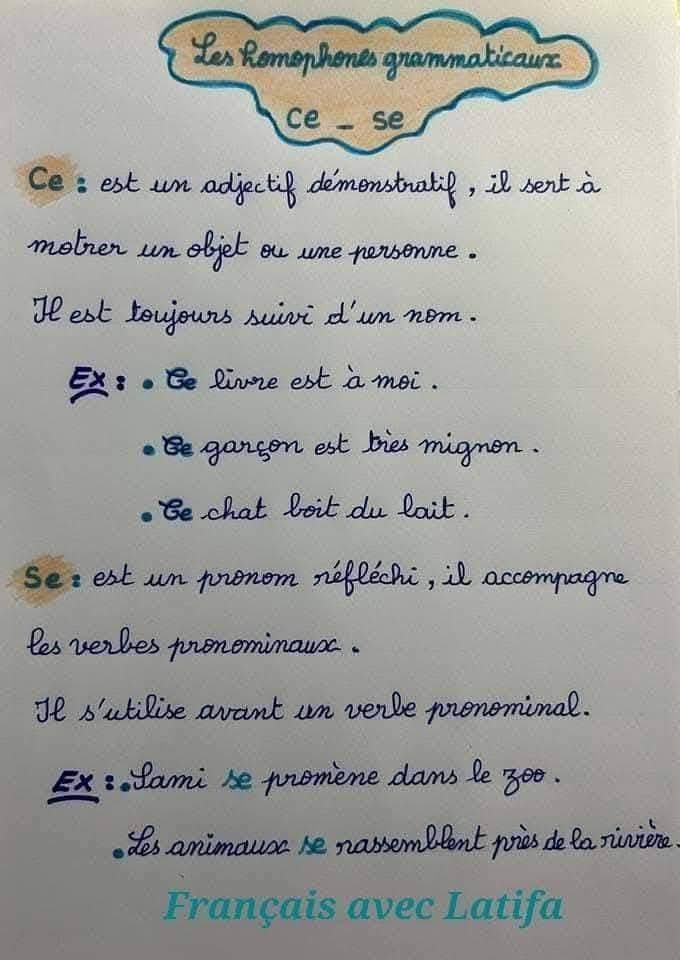 Les homophones grammaticaux
ce _ se
Ce : est un adjectif démonstratif, il sert à
motrer un objet ou une personne.
Il est toujours suivi d'un nom.
Ex : • Ce livre est à moi.
• Ce garçon est très mignon.
• Ce chat boit du lait.
Se : est un pronom réfléchi, il accompagne
les verbes pronominaux.
Il s'utilise avant un verbe pronominal.
Ex : • Sami se promène dans le zoo.
• Les animaux se rassemblent près de la rivière.
Français avec Latifa